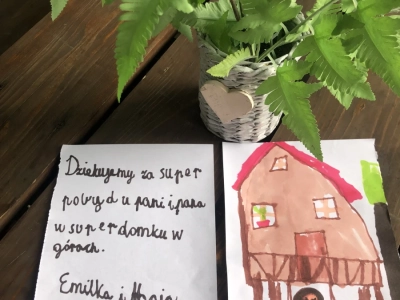 Dziękujemy za super
pobyd u pani i pana
w super domku w
górach.
Emilka i